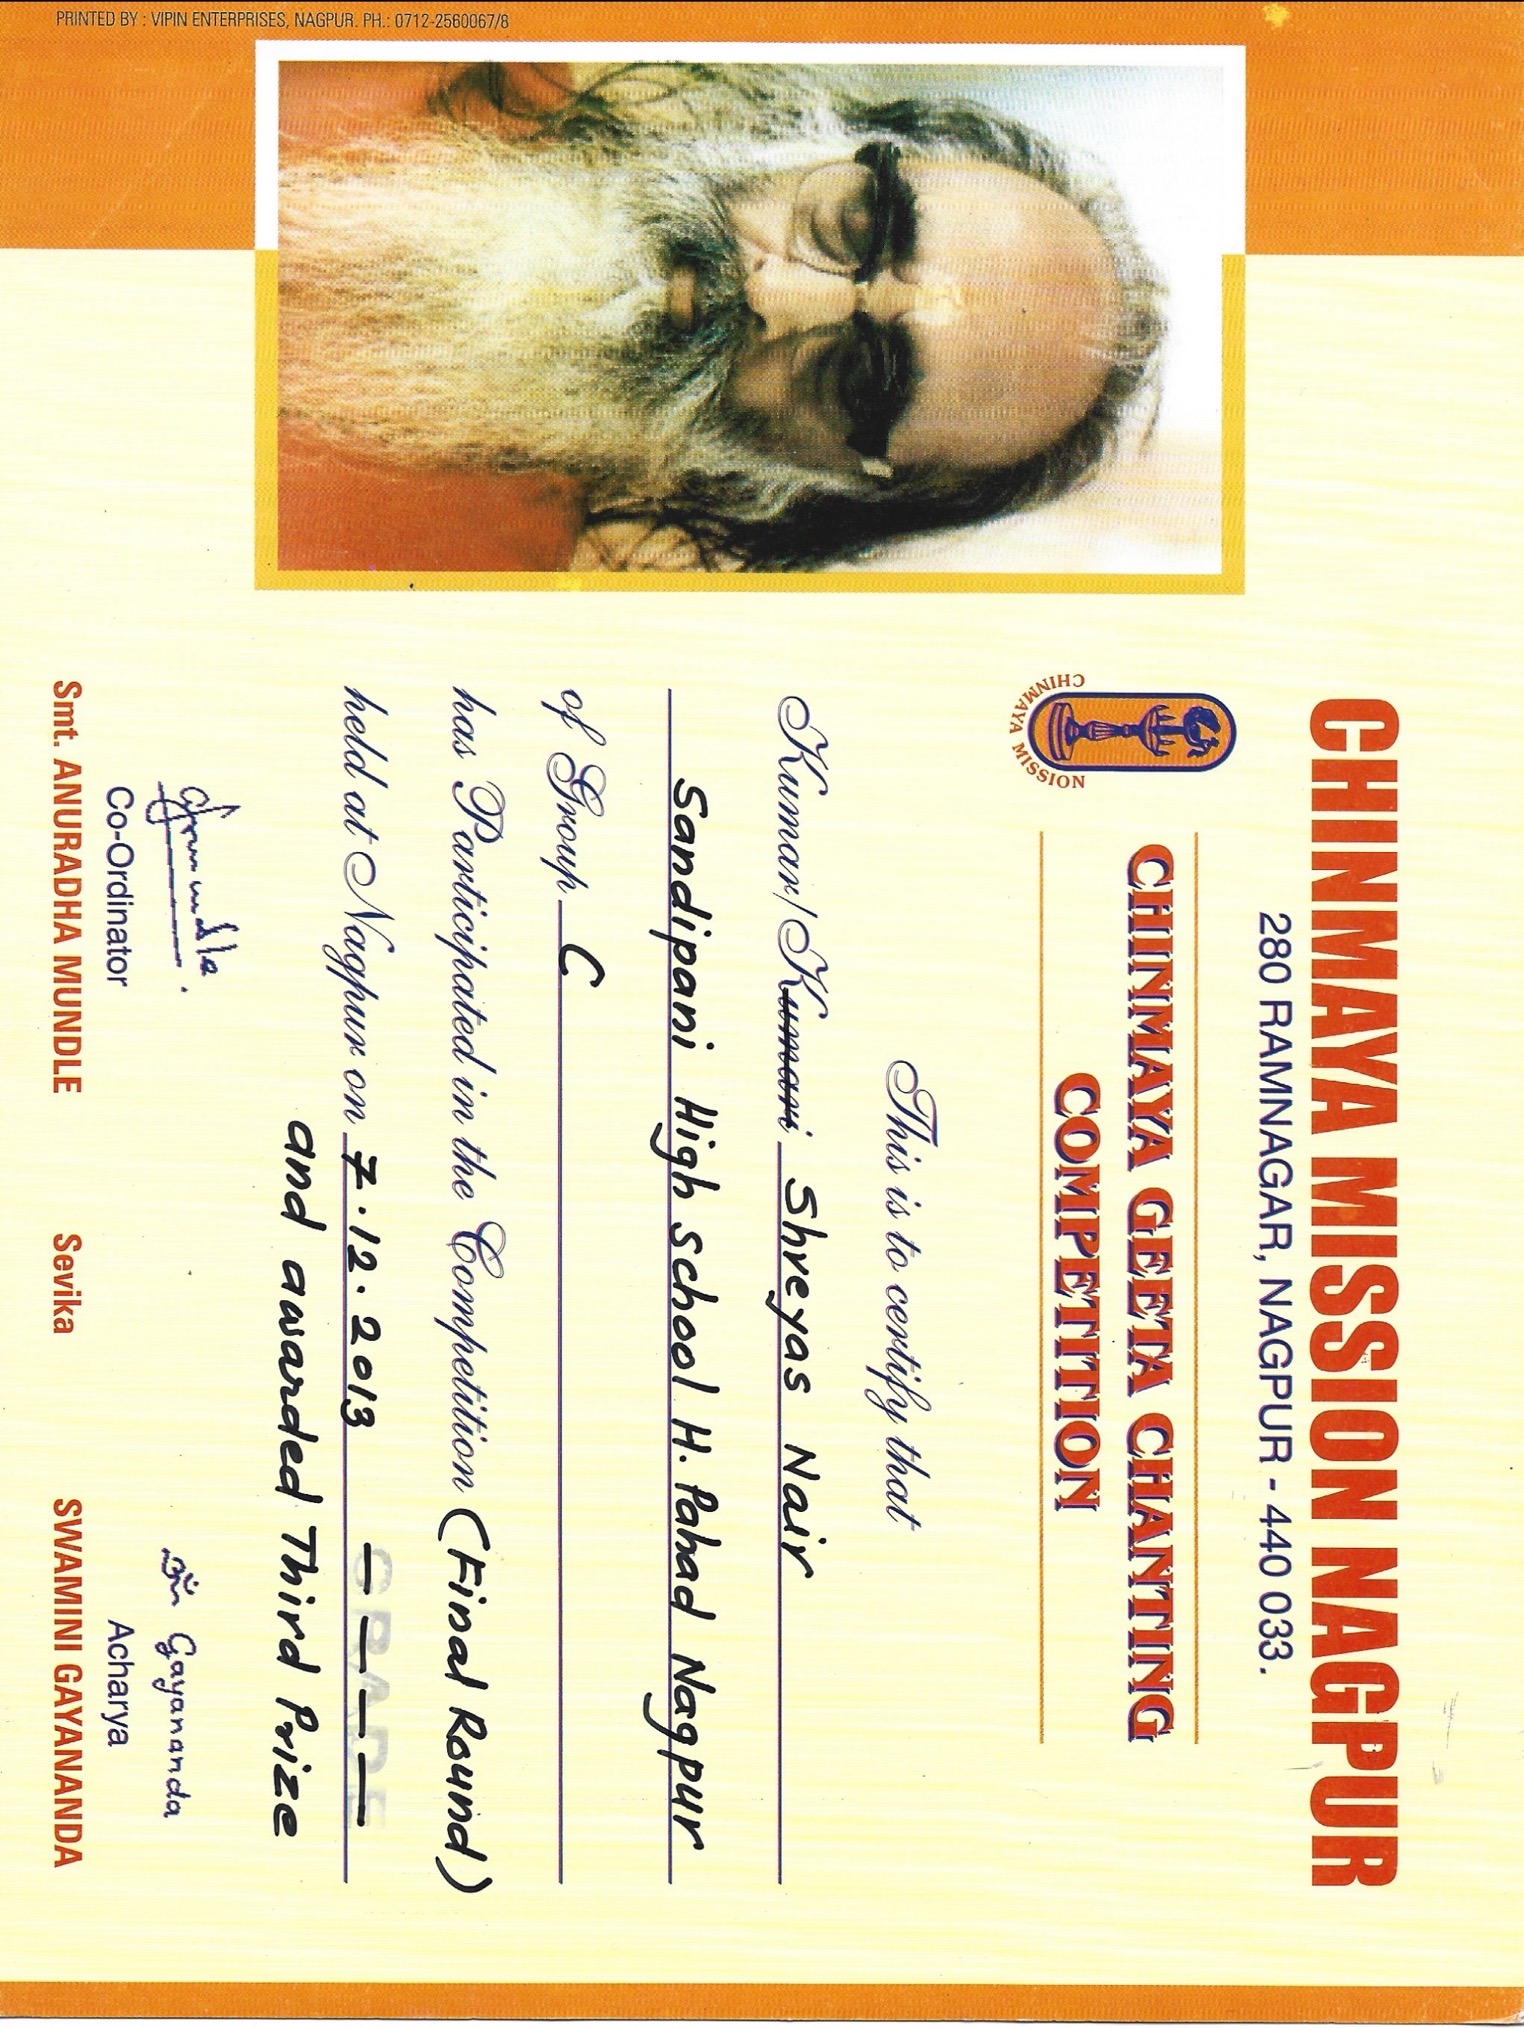 CHINMAYA MISSION NAGPUR
280 RAMNAGAR, NAGPUR - 440 033.
CHINMAYA MISSION
CHINMAYA GEETA CHANTING
COMPETITION
This is to certify that
Kumar/Kumari Shreyas Nair
Sandipani High school H. Pahad Nagpur
of Group C
has Participated in the Competition (Final Round)
held at Nagpur on 7.12.2013 GRADE
and awarded Third Prize
ॐ Gayananda
Co-Ordinator
Acharya
Smt. ANURADHA MUNDLE
Sevika
SWAMINI GAYANANDA
PRINTED BY : VIPIN ENTERPRISES, NAGPUR. PH.: 0712-2560067/8